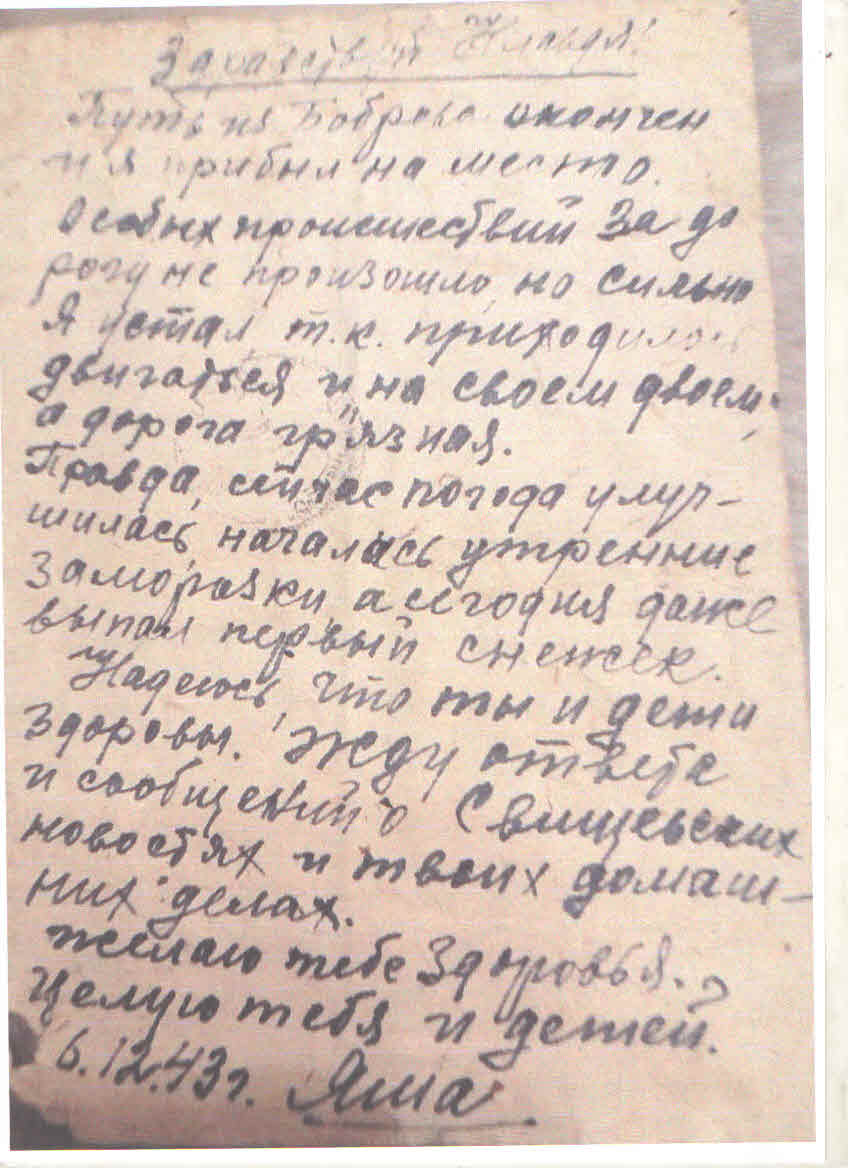 Здравствуй Клавдя!
Путь из Боброва окончен
и я прибыл на место.
Особых происшествий за до
рогу не произошло, но сильно
я устал т.к. приходилось
двигаться и на своем двоем,
а дорога грязная.
Правда, сейчас погода улуч-
шилась, началась утренние
заморозки, а сегодня даже
выпал первый снежек.
Надеюсь, что ты и дети
здоровы. Жду ответа
и сообщений о Свищевских
новостях и твоих домаш-
них делах.
Желаю тебе здоровья.
Целую тебя и детей.
6.12.43г. Яша